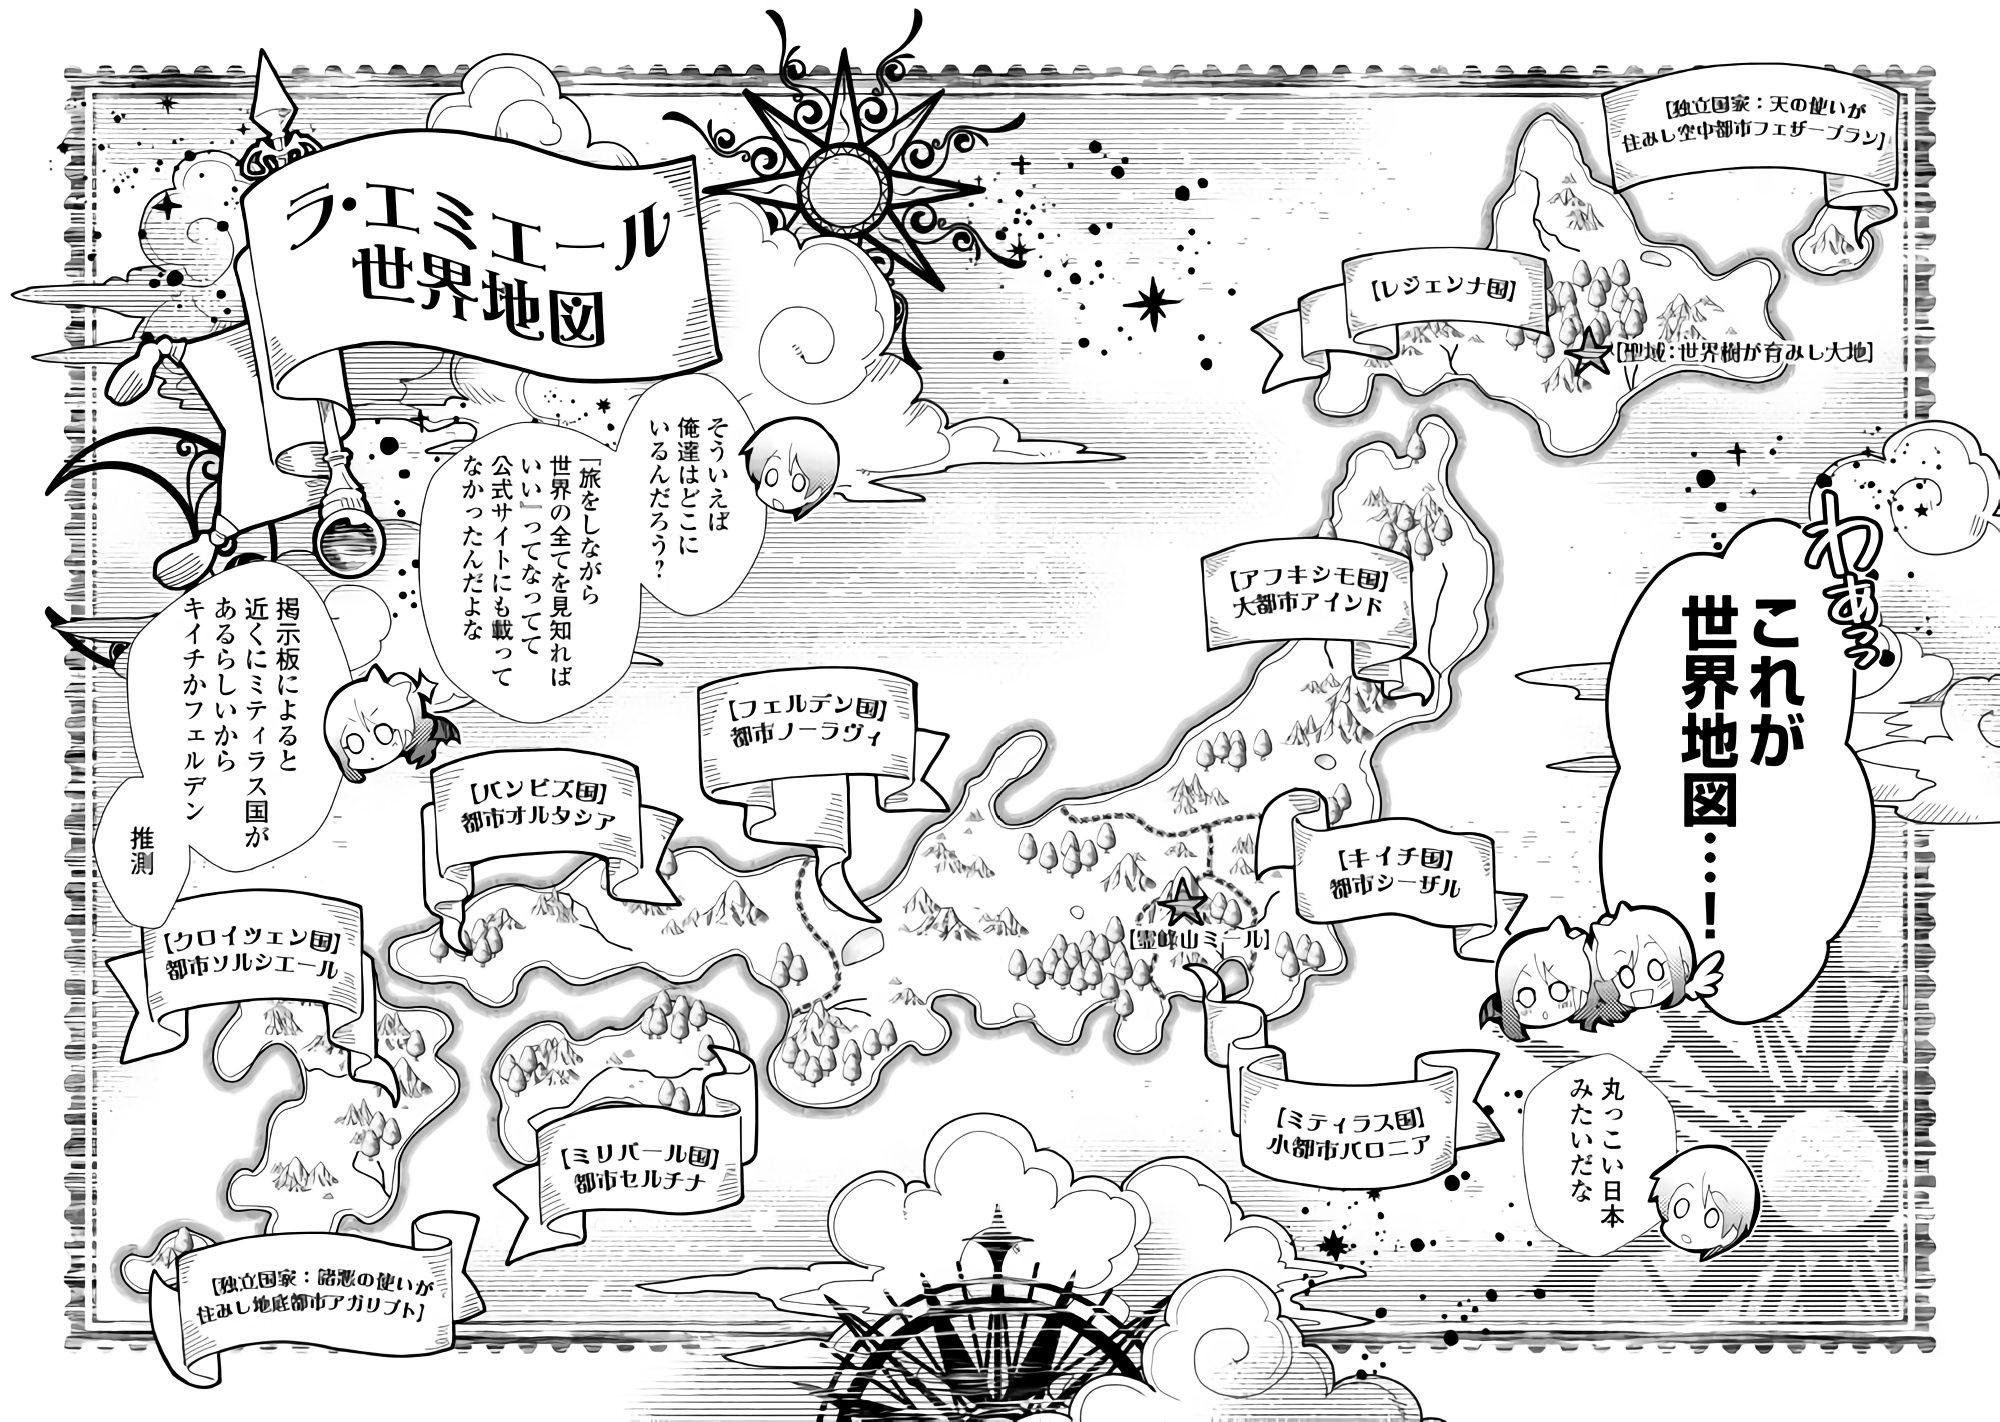 わあっっ
これが
世界地図……！
丸っこい日本
みたいだな
【独立国家：天の使いが
住みし空中都市フェザーブラン】
【レジェンナ国】
【聖域：世界樹が育みし大地】
【アフキシモ国】
大都市アインド
【キイチ国】
都市シーザル
【霊峰山ミール】
【ミティラス国】
小都市バロニア
ラ・エミエール
世界地図
そういえば
俺達はどこに
いるんだろう？
『旅をしながら
世界の全てを見知れば
いい』ってなってて
公式サイトにも載って
なかったんだよな
掲示板によると
近くにミティラス国が
あるらしいから
キイチかフェルデン
推測
【フェルデン国】
都市ノーラヴィ
【バンビズ国】
都市オルタシア
【クロイツェン国】
都市ソルシエール
【ミリバール国】
都市セルチナ
【独立国家：諸悪の使いが
住みし地底都市アガリプト】